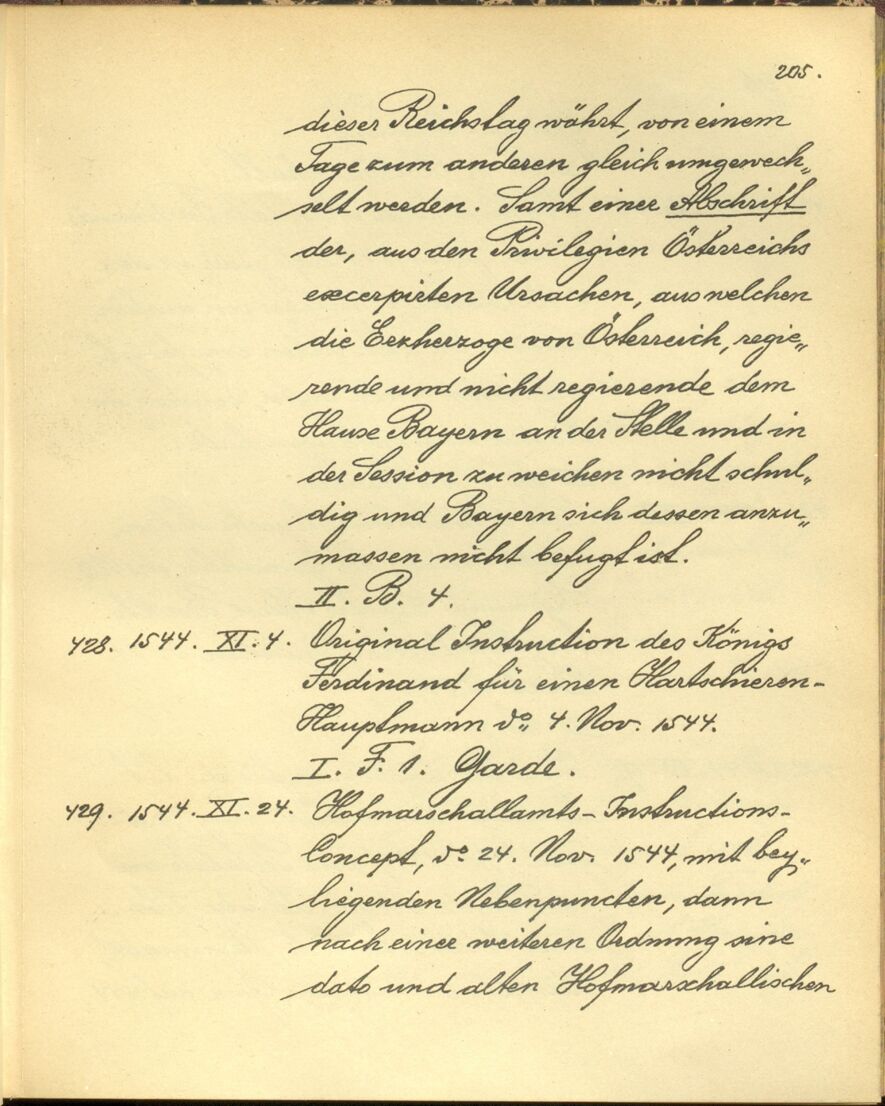 205.
dieser Reichstag währt, von einem
Tage zum anderen gleich umgewech„
selt werden. Samt einer Abschrift
der, aus den Privilegien Österreichs
excerpirten Ursachen, aus welchen
die Erzherzoge von Österreich, regie„
rende und nicht regierende dem
Hause Bayern an der Stelle und in
der Session zu weichen nicht schul„
dig und Bayern sich dessen anzu„
massen nicht befugt ist.
II. B. 4.
428. 1544. XI. 4. Original Instruction des Königs
Ferdinand für einen Hartschieren-
Hauptmann do„ 4. Nov. 1544.
I. F. 1. Garde.
429. 1544. XI. 24. Hofmarschallamts-Instructions-
Concept, do 24. Nov. 1544, mit bey„
liegenden Nebenpuncten, dann
nach einer weiteren Ordnung sine
dato und alten Hofmarschallischen